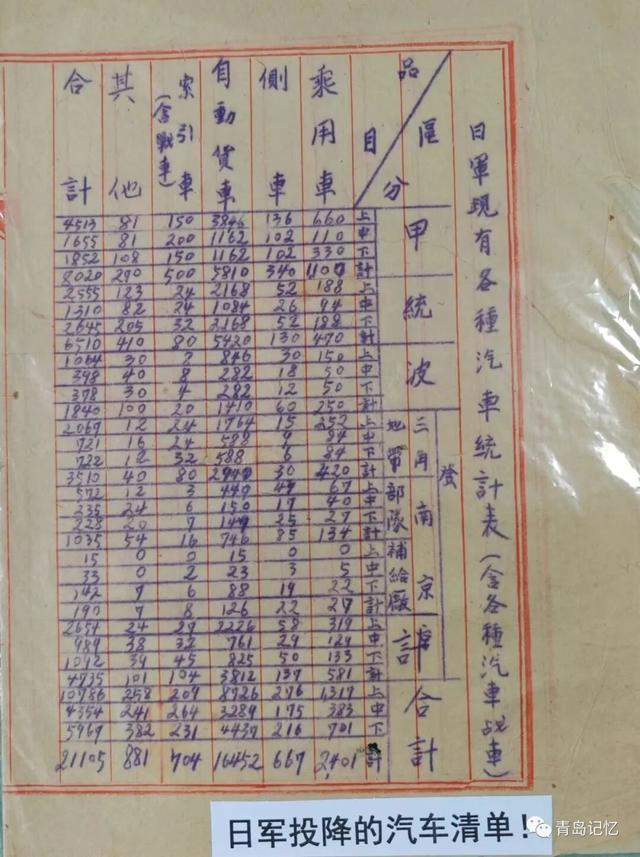 日軍現有各種汽車統計表（含各種汽車战車）
品目 區分
甲
統
波
登
三角地帶
南京
部隊
補給廠
計
合計
合計 其他 索引車（含戰車） 自動貨車 側車 乘用車
4513 81 150 3486 136 660 上
1655 81 200 1162 102 110 中
1852 108 150 1162 102 330 下
8020 270 500 5810 340 1100 計
2555 123 24 2168 52 188 上
1310 82 24 1084 26 94 中
2645 205 32 2168 52 188 下
6510 410 80 5420 130 470 計
1064 30 8 846 30 150 上
398 40 8 282 18 50 中
378 30 4 282 12 50 下
1840 100 20 1410 60 250 計
2067 12 24 1764 15 252 上
721 16 24 588 9 84 中
722 12 32 588 6 84 下
3510 40 80 2940 30 420 計
572 12 3 447 43 67 上
235 24 6 150 17 40 中
228 20 7 149 25 27 下
1035 54 16 746 85 134 計
15 0 0 15 0 0 上
33 0 2 23 3 5 中
142 7 6 88 19 22 下
190 7 8 126 22 27 計
2654 24 27 2226 58 319 上
989 38 32 761 29 129 中
1092 39 45 825 50 133 下
4735 101 104 3812 137 581 計
10786 258 209 8726 276 1,317 上
4354 241 264 3289 175 383 中
5967 382 231 4437 216 701 下
21105 881 704 16452 667 2,401 計
日军投降的汽车清单！
青岛记忆